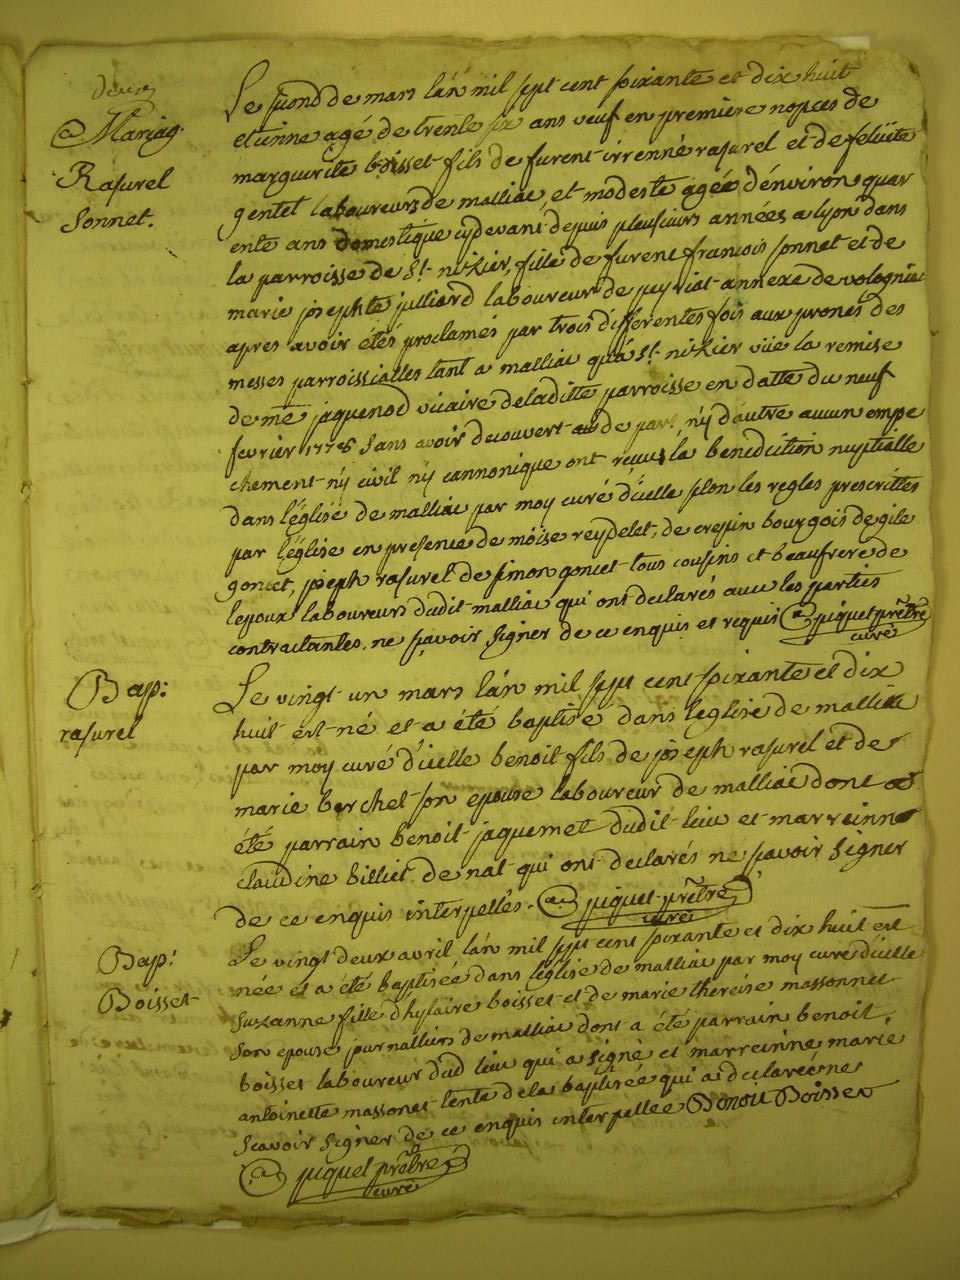 deux
Mariag.
Rasurel
Sonnet.
Le second de mars l'an mil sept cent soixante et dix huit
etienne agé de trente six ans veuf en premiere nopces de
marguerite boisset fils de furent irrenné rasurel et de feliüte
gentet laboureurs de malliac, et modeste agée d'environ quar
ente ans domestique cydevant depuis pleusieurs années a lyon dans
la parroisse de St. nizier, fille de furent francois sonnet et de
marie josephte julliard laboureurs de peyriat annexe de volognia
apres avoir étés proclamés par trois differentes fois aux prones des
messes parroissialles tant a malliac qu'a St. nizier vüe la remise
de me jaquenod vicaire de laditte parroisse en datte du neuf
fevrier 1778 sans avoir decouvert de part n'y d'autre aucun empe
chement n'y civil n'y cannonique ont reçus la benediction nuptialle
dans l'églisé de malliac par moy curé d'icelle selon les regles prescrittes
par l'église en presence de möise reydelet, de crepin bourgois de gile
goncet, joseph rasurel de simon goncet tous cousins et beaufrere de
lepoux laboureurs dudit malliac qui ont declarés avec les parties
contractantes, ne sçavoir signer de ce enquis et requis piquet prêtre
curé
Bap:
rasurel
Le vingt un mars l'an mil sept cent soixante et dix
huit est né et a été baptisé dans leglise de malliac
par moy curé d'icelle benoit fils de joseph rasurel et de
marie berchet son epouse laboureur de malliac dont a
été parrain benoit jaquemet dudit lieu et marreinne
claudine billiet de nat qui ont declarés ne sçavoir signer
de ce enquis interpellés. piquet prêtre
curé
Bap:
Boisset
Le vingt deux avril l'an mil sept cent soixante et dix huit est
née et a été baptisée dans l'église de malliac par moy curé d'icelle
Suzanne fille d'hylaire boisset et de marie thereise massonnet
son epouse journalliers de malliac dont a été parrain benoit
boisset laboureur dud lieu qui a signé et marreinne marie
antoinette massonet tente de la baptisée qui a declaré ne
scavoir signer de ce enquis interpellée Benoit Boisset
piquet prêtre
curé